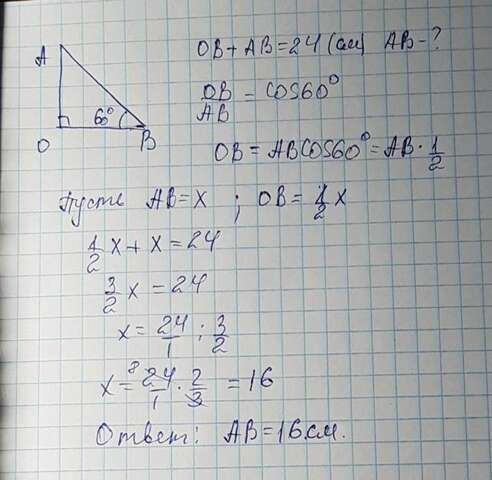 A
60°
O
B
OB + AB = 24 (см) AB - ?
OB/AB = cos60°
OB = AB cos60° = AB · 1/2
Пусть AB = x ; OB = 1/2 x
1/2 x + x = 24
3/2 x = 24
x = 24/1 : 3/2
x = 8 24/1 · 2/3 = 16
Ответ: AB = 16 см.